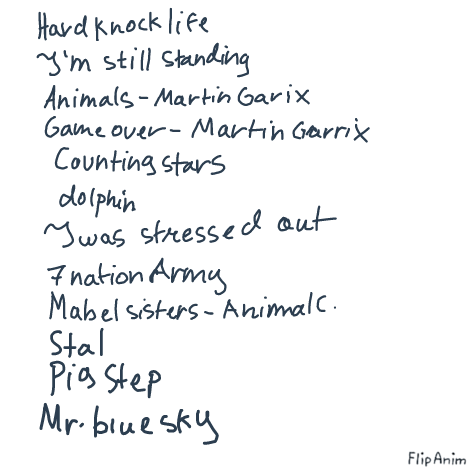 Hard knock life
I'm still standing
Animals - Martin Garix
Game over - Martin Garrix
Counting stars
dolphin
I was stressed out
7 nation Army
Mabel sisters - Animal C.
Stal
Pig Step
Mr. blue sky
FlipAnim